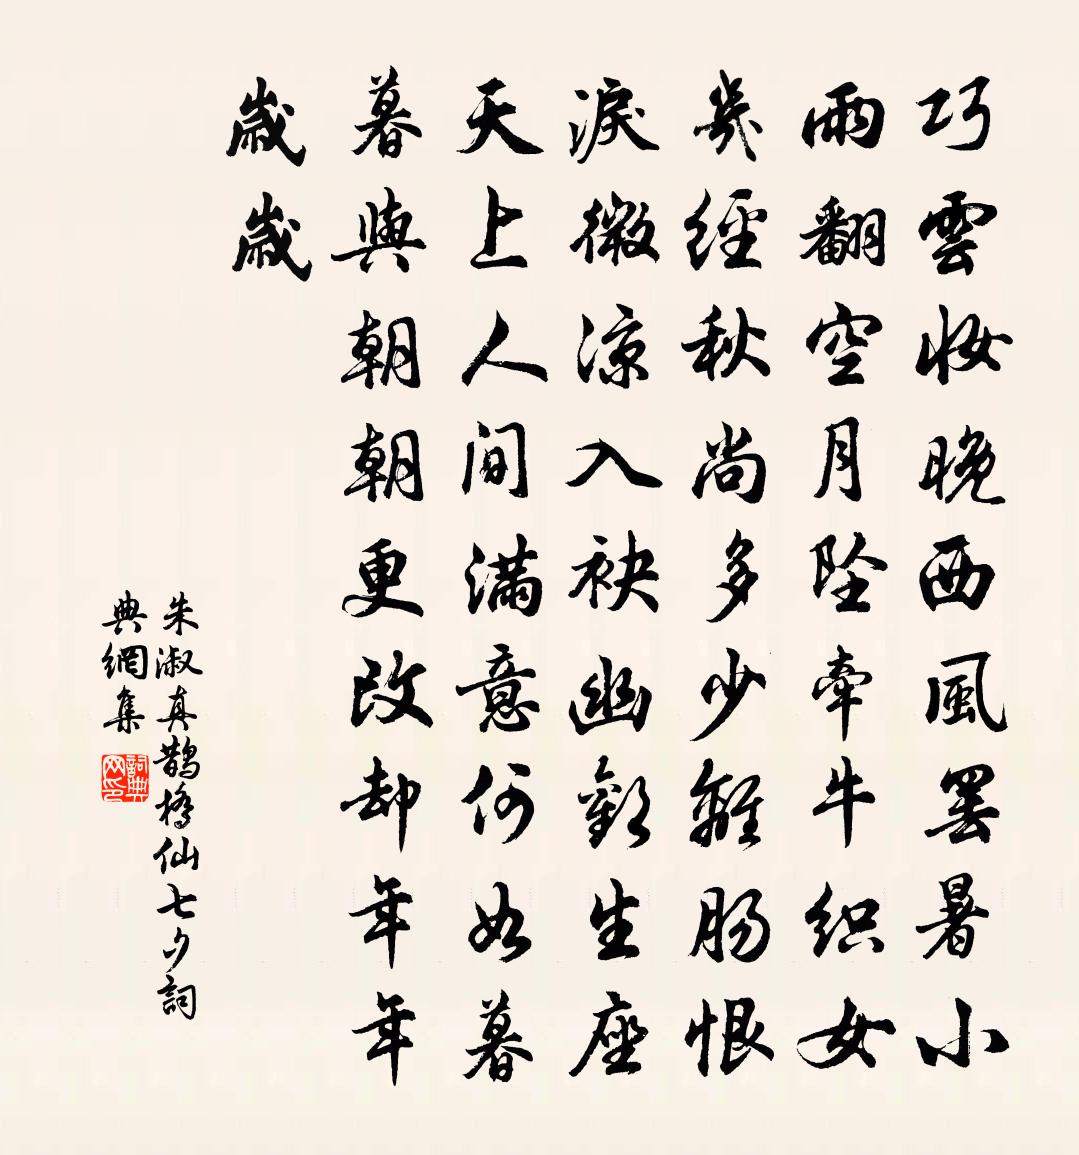 巧雲妝晚西風罷暑小
雨翻空月墜牽牛織女
幾經秋尚多少離腸恨
淚微涼入袂幽歡生座
天上人間滿意何如暮
暮與朝朝更改卻年年
歲歲
朱淑真鵲橋仙七夕詞
典網集
詞典
网印